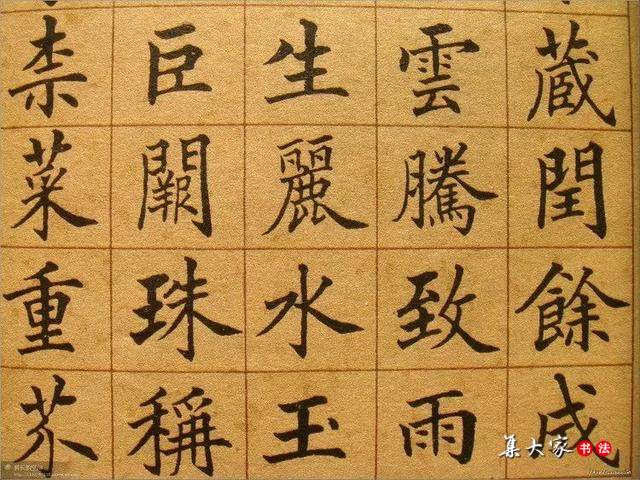 藏閏餘成
雲騰致雨
生麗水玉
巨闕珠稱
柰菜重芥
集大家书法